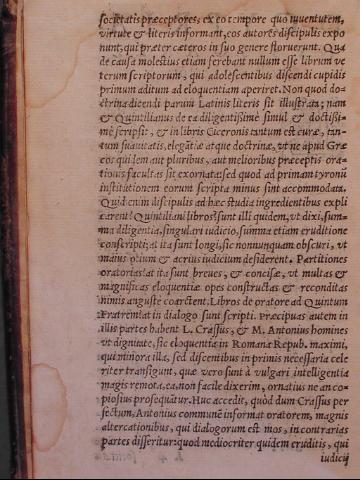 societatis præceptores, ex eo tempore quo iuuentutem,
virtute & literis informant, eos autores discipulis expo
nunt, qui præter cæteros in suo genere floruerunt. Qua
de causa molestius etiam ferebant nullum esse librum ve
terum scriptorum, qui adolescentibus discendi cupidis
primum aditum ad eloquentiam aperiret. Non quod do-
ctrina dicendi parum Latinis literis sit illustrata; nam
& Quintilianus de ea diligentissimè simul & doctissi-
mè scripsit, & in libris Ciceronis tantum est curæ, tan-
tum suauitatis, elegātiæ atque doctrinæ, vt ne apud Græ-
cos quidem aut pluribus, aut melioribus præceptis ora-
tionis facultas sit exornata: sed quod ad primam tyronum
institutionem eorum scripta minus sint accommodata.
Quid enim discipulis ad hæc studia ingredientibus expli
carent? Quintiliani libros? sunt illi quidem, vt dixi, sum-
ma diligentia, singulari iudicio, summa etiam eruditione
conscripti; at ita sunt longi, sic nonnunquam obscuri, vt
maius otium & acrius iudicium desiderent. Partitiones
oratorias? at ita sunt breues, & concisæ, vt multas &
magnificas eloquentiæ opes constructas & reconditas
nimis anguste coarctent. Libros de oratore ad Quintum
Fratrem? at in dialogo sunt scripti. Præcipuas autem in
illis partes habent L. Crassus, & M. Antonius homines
vt dignitate, sic eloquentia in Romana Repub. maximi,
qui minora illa, sed discentibus in primis necessaria cele
riter transigunt, quæ vero sunt à vulgari intelligentia
magis remota, ea, non facile dixerim, ornatius ne an co-
piosius prosequātur. Huc accedit, quòd dum Crassus per
fectum, Antonius communē informat oratorem, magnis
altercationibus, qui dialogorum est mos, in contrarias
partes disseritur: quod mediocriter quidem eruditis, qui
iudicij